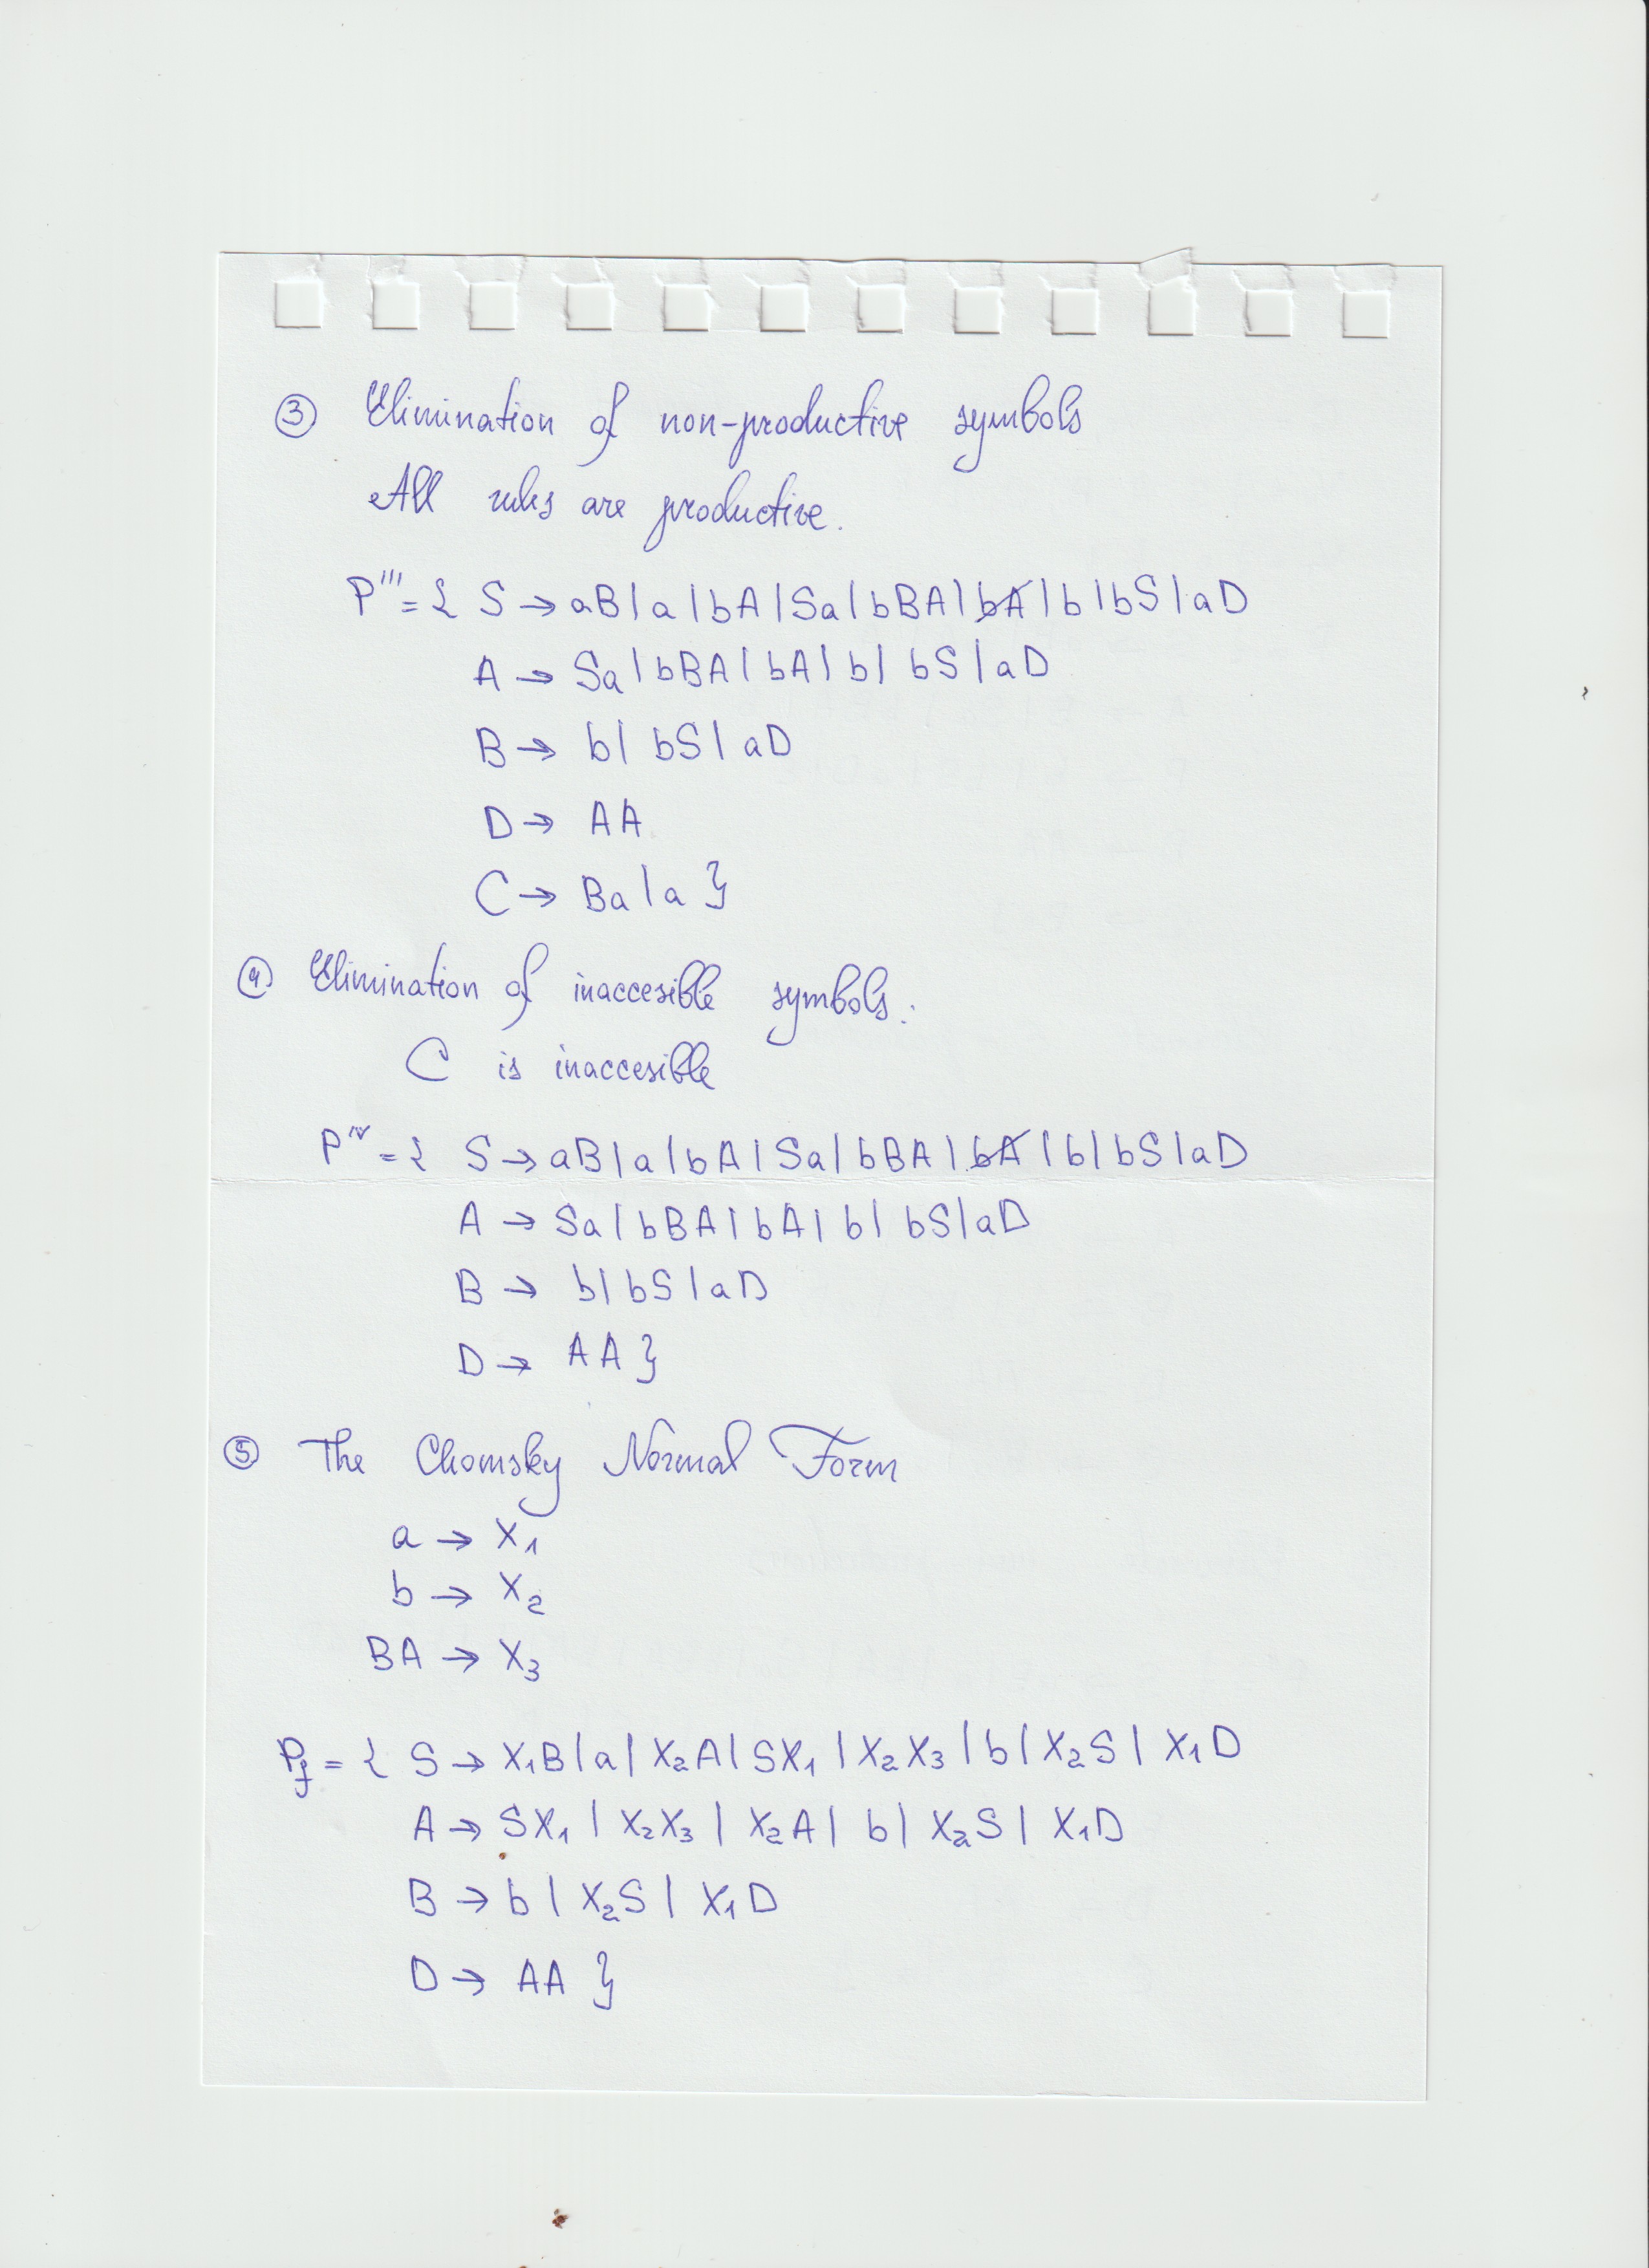 ③ Elimination of non-productive symbols
All rules are productive.
P''' = { S → aB | a | bA | Sa | bBA | bA | b | bS | aD
A → Sa | bBA | bA | b | bS | aD
B → b | bS | aD
D → AA
C → Ba | a }
④ Elimination of inaccesible symbols.
C is inaccesible
P^IV = { S → aB | a | bA | Sa | bBA | bA | b | bS | aD
A → Sa | bBA | bA | b | bS | aD
B → b | bS | aD
D → AA }
⑤ The Chomsky Normal Form
a → X₁
b → X₂
BA → X₃
P_f = { S → X₁B | a | X₂A | SX₁ | X₂X₃ | b | X₂S | X₁D
A → SX₁ | X₂X₃ | X₂A | b | X₂S | X₁D
B → b | X₂S | X₁D
D → AA }